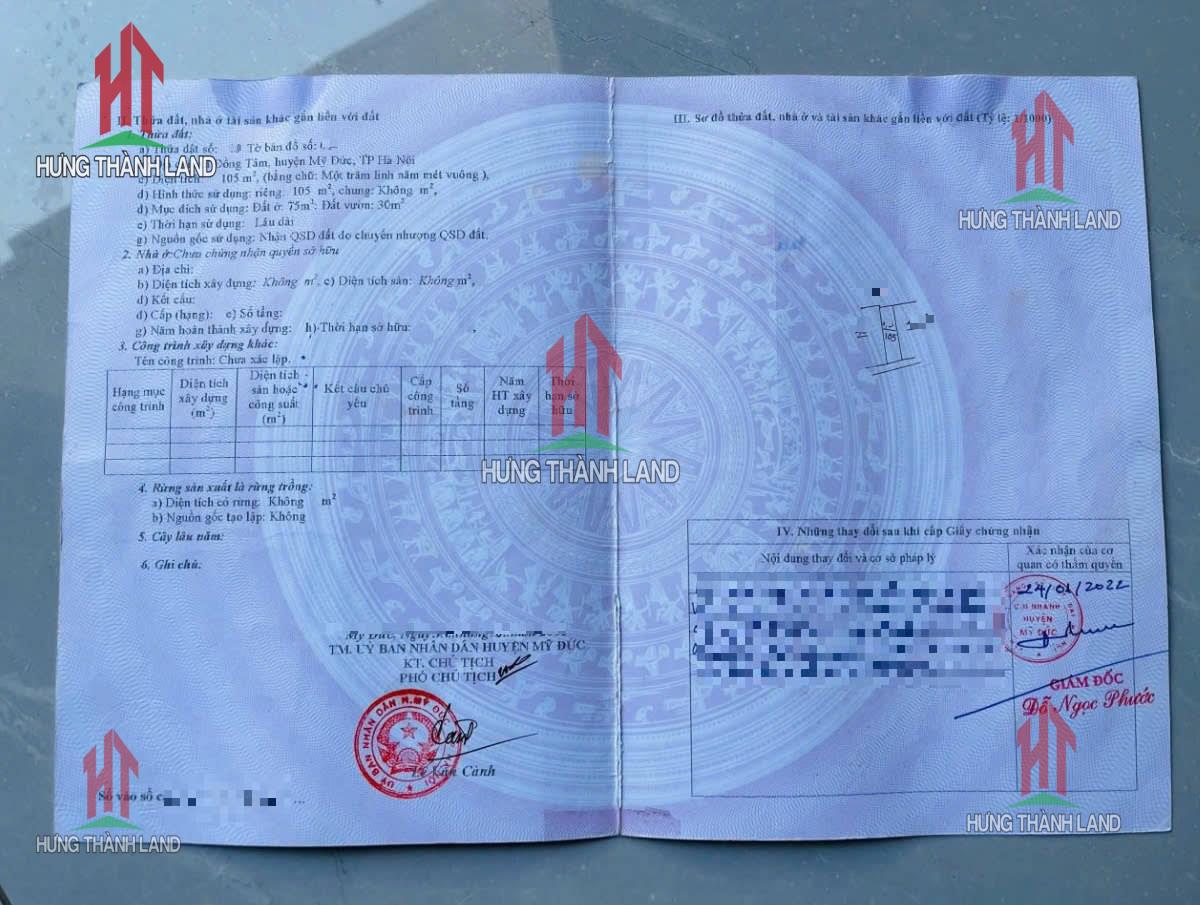 II. Thửa đất, nhà ở tài sản khác gắn liền với đất
1. Thửa đất:
a) Thửa đất số: Tờ bản đồ số:
Đồng Tâm, huyện Mỹ Đức, TP Hà Nội
c) Diện tích 105 m², (bằng chữ: Một trăm linh năm mét vuông ),
d) Hình thức sử dụng: riêng: 105 m², chung: Không m²,
đ) Mục đích sử dụng: Đất ở: 75m²: Đất vườn: 30m²
e) Thời hạn sử dụng: Lâu dài
g) Nguồn gốc sử dụng: Nhận QSD đất do chuyển nhượng QSD đất.
2. Nhà ở:Chưa chứng nhận quyền sở hữu
a) Địa chỉ:
b) Diện tích xây dựng: Không m², c) Diện tích sàn: Không m²,
d) Kết cấu:
đ) Cấp (hạng): e) Số tầng:
g) Năm hoàn thành xây dựng: h) Thời hạn sở hữu:
3. Công trình xây dựng khác:
Tên công trình: Chưa xác lập.
Hạng mục công trình
Diện tích xây dựng (m²)
Diện tích sàn hoặc công suất (m²)
Kết cấu chủ yếu
Cấp công trình
Số tầng
Năm HT xây dựng
Thời hạn sở hữu
4. Rừng sản xuất là rừng trồng:
a) Diện tích có rừng: Không m²
b) Nguồn gốc tạo lập: Không
5. Cây lâu năm:
6. Ghi chú:
Mỹ Đức, Ngày
TM. ỦY BAN NHÂN DÂN HUYỆN MỸ ĐỨC
KT. CHỦ TỊCH
PHÓ CHỦ TỊCH
ỦY BAN NHÂN DÂN H.MỸ ĐỨC
Lê Văn Cảnh
Số vào sổ
III. Sơ đồ thửa đất, nhà ở và tài sản khác gắn liền với đất (Tỷ lệ: 1/1000)
IV. Những thay đổi sau khi cấp Giấy chứng nhận
Nội dung thay đổi và cơ sở pháp lý
Xác nhận của cơ quan có thẩm quyền
24/01/2022
C.N NHÁNH
HUYỆN
MỸ ĐỨC
GIÁM ĐỐC
Đỗ Ngọc Phước
HƯNG THÀNH LAND
HƯNG THÀNH LAND
HƯNG THÀNH LAND
HƯNG THÀNH LAND
HƯNG THÀNH LAND